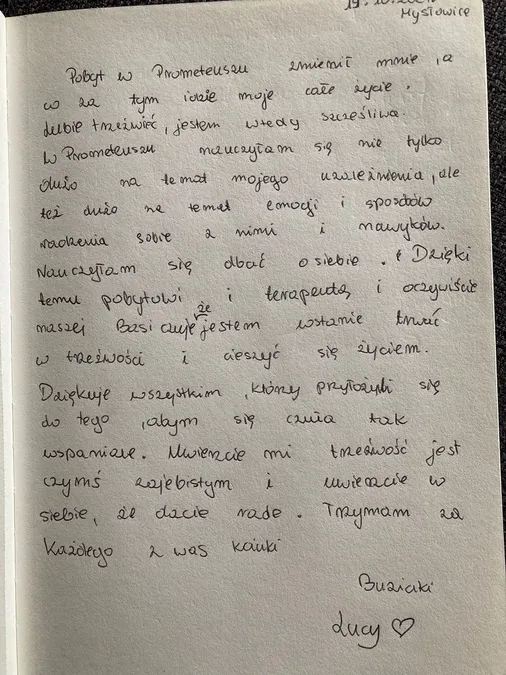 Mysłowice
Pobyt w Prometeuszu zmienił mnie ,a
w za tym idzie moje całe życie.
Lubie trzeźwieć, jestem wtedy szczęśliwa.
W Prometeuszu nauczyłam się nie tylko
dużo na temat mojego uzależnienia, ale
też dużo na temat emocji i sposobów
radzenia sobie z nimi i nawyków.
Nauczyłam się dbać o siebie. Dzięki
temu pobytowi i terapeutą i oczywiście
naszej Basi czuje że jestem wstanie trwać
w trzeźwości i cieszyć się życiem.
Dziękuje wszystkim ,którzy przyłożyli się
do tego ,abym się czuła tak
wspaniale. Uwierzcie mi trzeźwość jest
czymś zajebistym i uwierzcie w
siebie, że dacie rade. Trzymam za
każdego z was kciuki
Buziaki
Lucy ♡